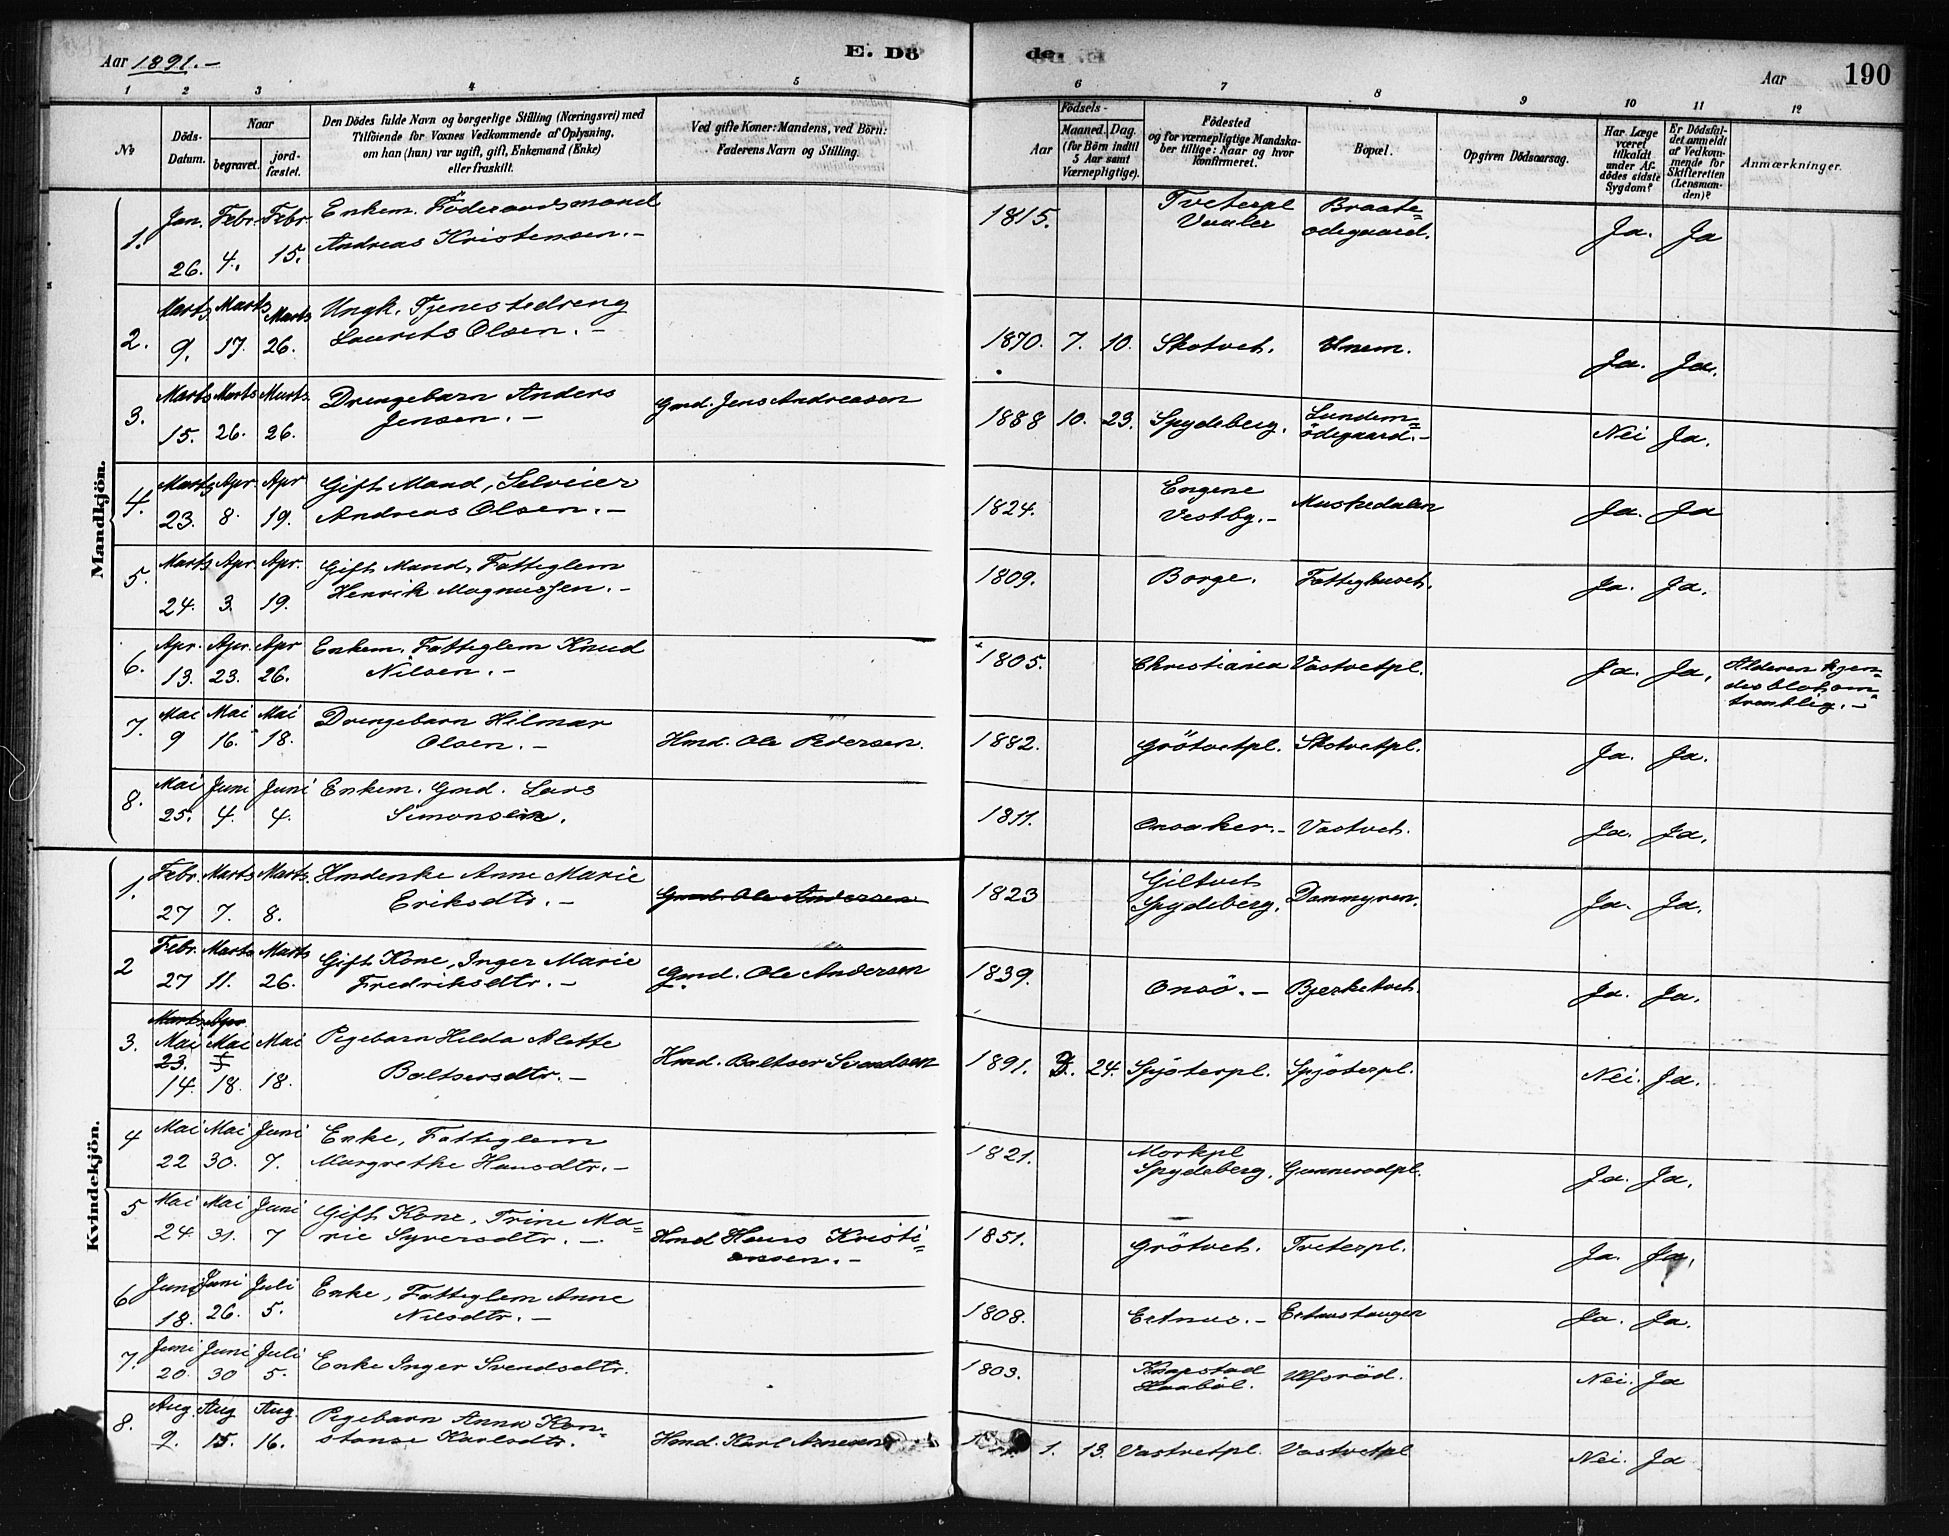 Aar 1891.-
E. Dö
de.
Aar
190
1 2 3 4 5 6 7 8 9 10 11 12
No
Döds-
Datum.
Naar
begravet.
jord-
fæstet.
Den Dödes fulde Navn og borgerlige Stilling (Næringsvei) med
Tilföiende for Voxnes Vedkommende af Oplysning,
om han (hun) var ugift, gift, Enkemand (Enke)
eller fraskilt.
Ved gifte Koner: Mandens, ved Börn:
Faderens Navn og Stilling.
Födsels-
Aar
Maaned. Dag.
(for Börn indtil
5 Aar samt
Værnepligtige).
Födested
og for værnepligtige Mandska-
ber tillige: Naar og hvor
Konfirmeret.
Bopæl.
Opgiven Dödsaarsag.
Har Læge
været
tilkaldt
under Af-
dödes sidste
Sygdom?
Er Dödsfal-
det anmeldt
af Vedkom-
mende for
Skifteretten
(Lensman-
den)?
Anmærkninger.
Mandkjön.
1. Jan. 26. Febr. 4. Febr. 15. Enkem. Föderaadsmand
Andreas Kristensen.- 1815. Tveterpl
Vaaler Braate=
ödegaard. Ja. Ja
2. Marts 9. Marts 17. Marts 26. Ungk. Tjenestedreng
Laurits Olsen.- 1870. 7. 10. Skotvet. Unem. Ja. Ja.
3. Marts 15. Marts 26. Marts 26. Drengebarn Anders
Jensen.- Gmd. Jens Andreasen 1888 10. 23. Spydeberg. Lundem=
ödegaard.- Nei Ja.
4. Marts 23. Apr. 8. Apr 19. Gift Mand, Selveier
Andreas Olsen.- 1824. Engene
Vestby.- Muskedalen Ja. Ja
5. Marts 24. Apr. 3. Apr. 19. Gift Mand, Fattiglem
Henrik Magnussen.- 1809. Borge. Fattighuset. Ja. Ja.
6. Apr. 13. Apr. 23. Apr 26. Enkem. Fattiglem Knud
Nilsen.- 1805. Christiania Vastvetpl. Ja. Ja. Alderen kjen=
des blot om=
trentlig.-
7. Mai 9 Mai 16. Mai 18. Drengebarn Hilmar
Olsen.- Hmd. Ole Pedersen. 1882. Grötvetpl. Skotvetpl. Ja. Ja.
8. Mai 25. Juni 4. Juni 4. Enkem. Gmd. Lars
Simonsen. 1811. Onsaker.- Vastvet. Ja. Ja.
Kvindekjön.
1. Febr. 27 Marts 7. Marts. 8. Hmdenke Anne Marie
Eriksdtr.- Gmd. Ole Andersen 1823 Giltvet
Spydeberg. Dammyren. Ja. Ja.
2 Febr. 27 Marts 11. Marts 26. Gift Kone, Inger Marie
Fredriksdtr.- Gmd. Ole Andersen 1839. Onsö.- Bjerketvet. Ja. Ja.
3. Marts Apr
Mai Mai Mai
23.
14. 18. 18. Pigebarn Hilda Alette
Baltsersdtr.- Hmd. Baltser Svendsen 1891. 24. Spjöterpl. Spjöterpl. Nei. Ja.
4 Mai 22 Mai 30. Juni 7. Enke, Fattiglem
Margrethe Hansdtr.- 1821. Morkpl
Spydeberg. Gunnerödpl. Ja. Ja.
5 Mai 24 Mai 31. Juni 7 Gift Kone, Trine Ma=
rie Syversdtr.- Hmd Hans Kristi=
ansen.- 1851. Grötvet. Tveterpl. Ja. Ja.
6 Juni 18. Juni 26. Juli 5. Enke, Fattiglem Anne
Nilsdtr.- 1808. Eetnus.- Eetnustangen Ja. Ja.
7. Juni 20. Juni 30 Juli 5. Enke Inger Svendsdtr. 1803. Knapstad
Haaböl. Ulfsröd. Nei. Ja
8. Aug. 9. Aug 15. Aug. 16. Pigebarn Anna Kon=
stanse Karlsdtr. Hmd. Karl 1. 13. Vastvetpl. Vastvetpl Nei. Ja